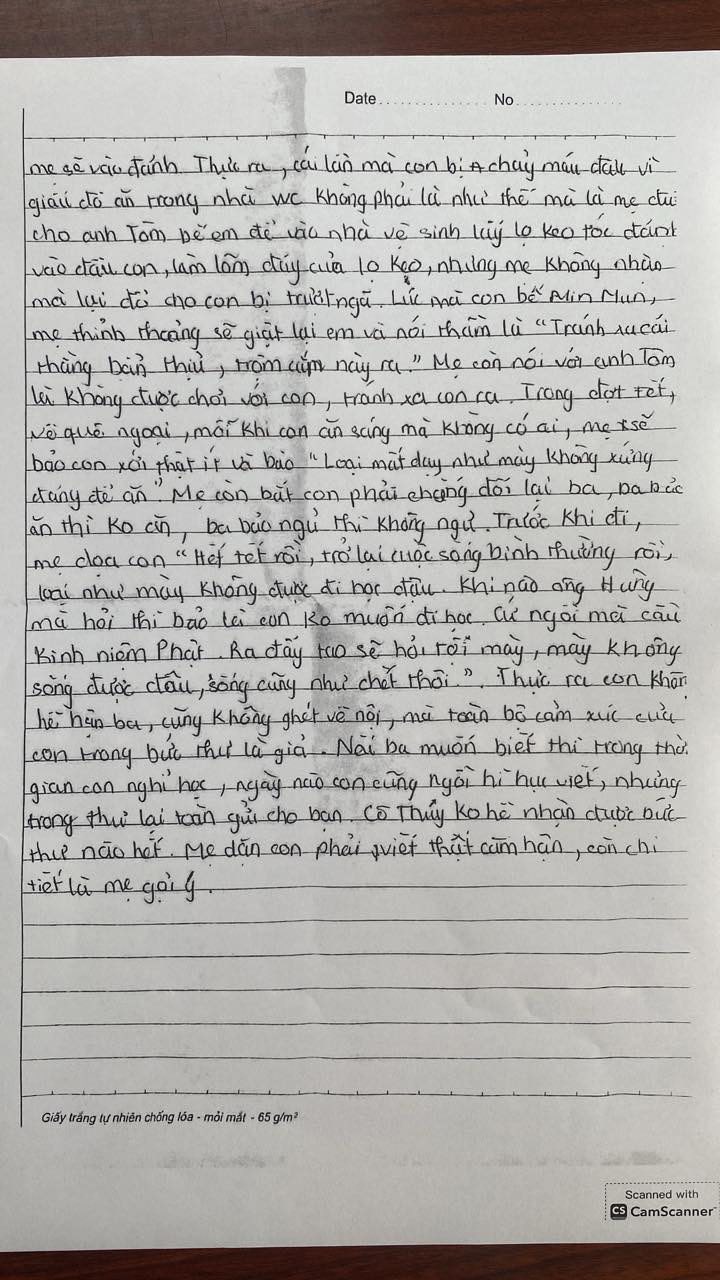 Date No
mẹ sẽ vào đánh. Thực ra, cái lần mà con bị chảy máu đầu vì
giấu đồ ăn trong nhà wc không phải là như thế mà là mẹ đưa
cho anh Tôm bế em để vào nhà vệ sinh lấy lọ keo tóc đánh
vào đầu con, làm lõm đáy của lọ keo, nhưng mẹ không nhận
mà lại đổ cho con bị trượt ngã. Lúc mà con bế Min Mun,
mẹ thỉnh thoảng sẽ giật lại em và nói thầm là "Tránh xa cái
thằng bẩn thỉu, trộm cắp này ra." Mẹ còn nói với anh Tôm
là không được chơi với con, tránh xa con ra. Trong đợt tết,
về quê ngoại, mỗi khi con ăn sáng mà không có ai, mẹ sẽ
bảo con xới thật ít và bảo "Loại mất dạy như mày không xứng
đáng để ăn". Mẹ còn bắt con phải chống đối lại ba, ba bảo
ăn thì ko ăn, ba bảo ngủ thì không ngủ. Trước khi đi,
mẹ dọa con "Hết tết rồi, trở lại cuộc sống bình thường rồi,
loại như mày không được đi học đâu. Khi nào ông Hưng
mà hỏi thì bảo là con ko muốn đi học. Cứ ngồi mà cầu
kinh niệm Phật. Ra đấy tao sẽ hỏi tội mày, mày không
sống được đâu, sống cũng như chết thôi". Thực ra con không
hề hận ba, cũng không ghét về nội, mà toàn bộ cảm xúc của
con trong bức thư là giả. Nài ba muốn biết thì trong thời
gian con nghỉ học, ngày nào con cũng ngồi hì hục viết, nhưng
trong thư lại toàn gửi cho bạn. Cô Thủy ko hề nhận được bức
thư nào hết. Mẹ dặn con phải viết thật căm hận, còn chi
tiết là mẹ gợi ý.
Giấy trắng tự nhiên chống lóa - mỏi mắt - 65 g/m²
Scanned with
CS CamScanner